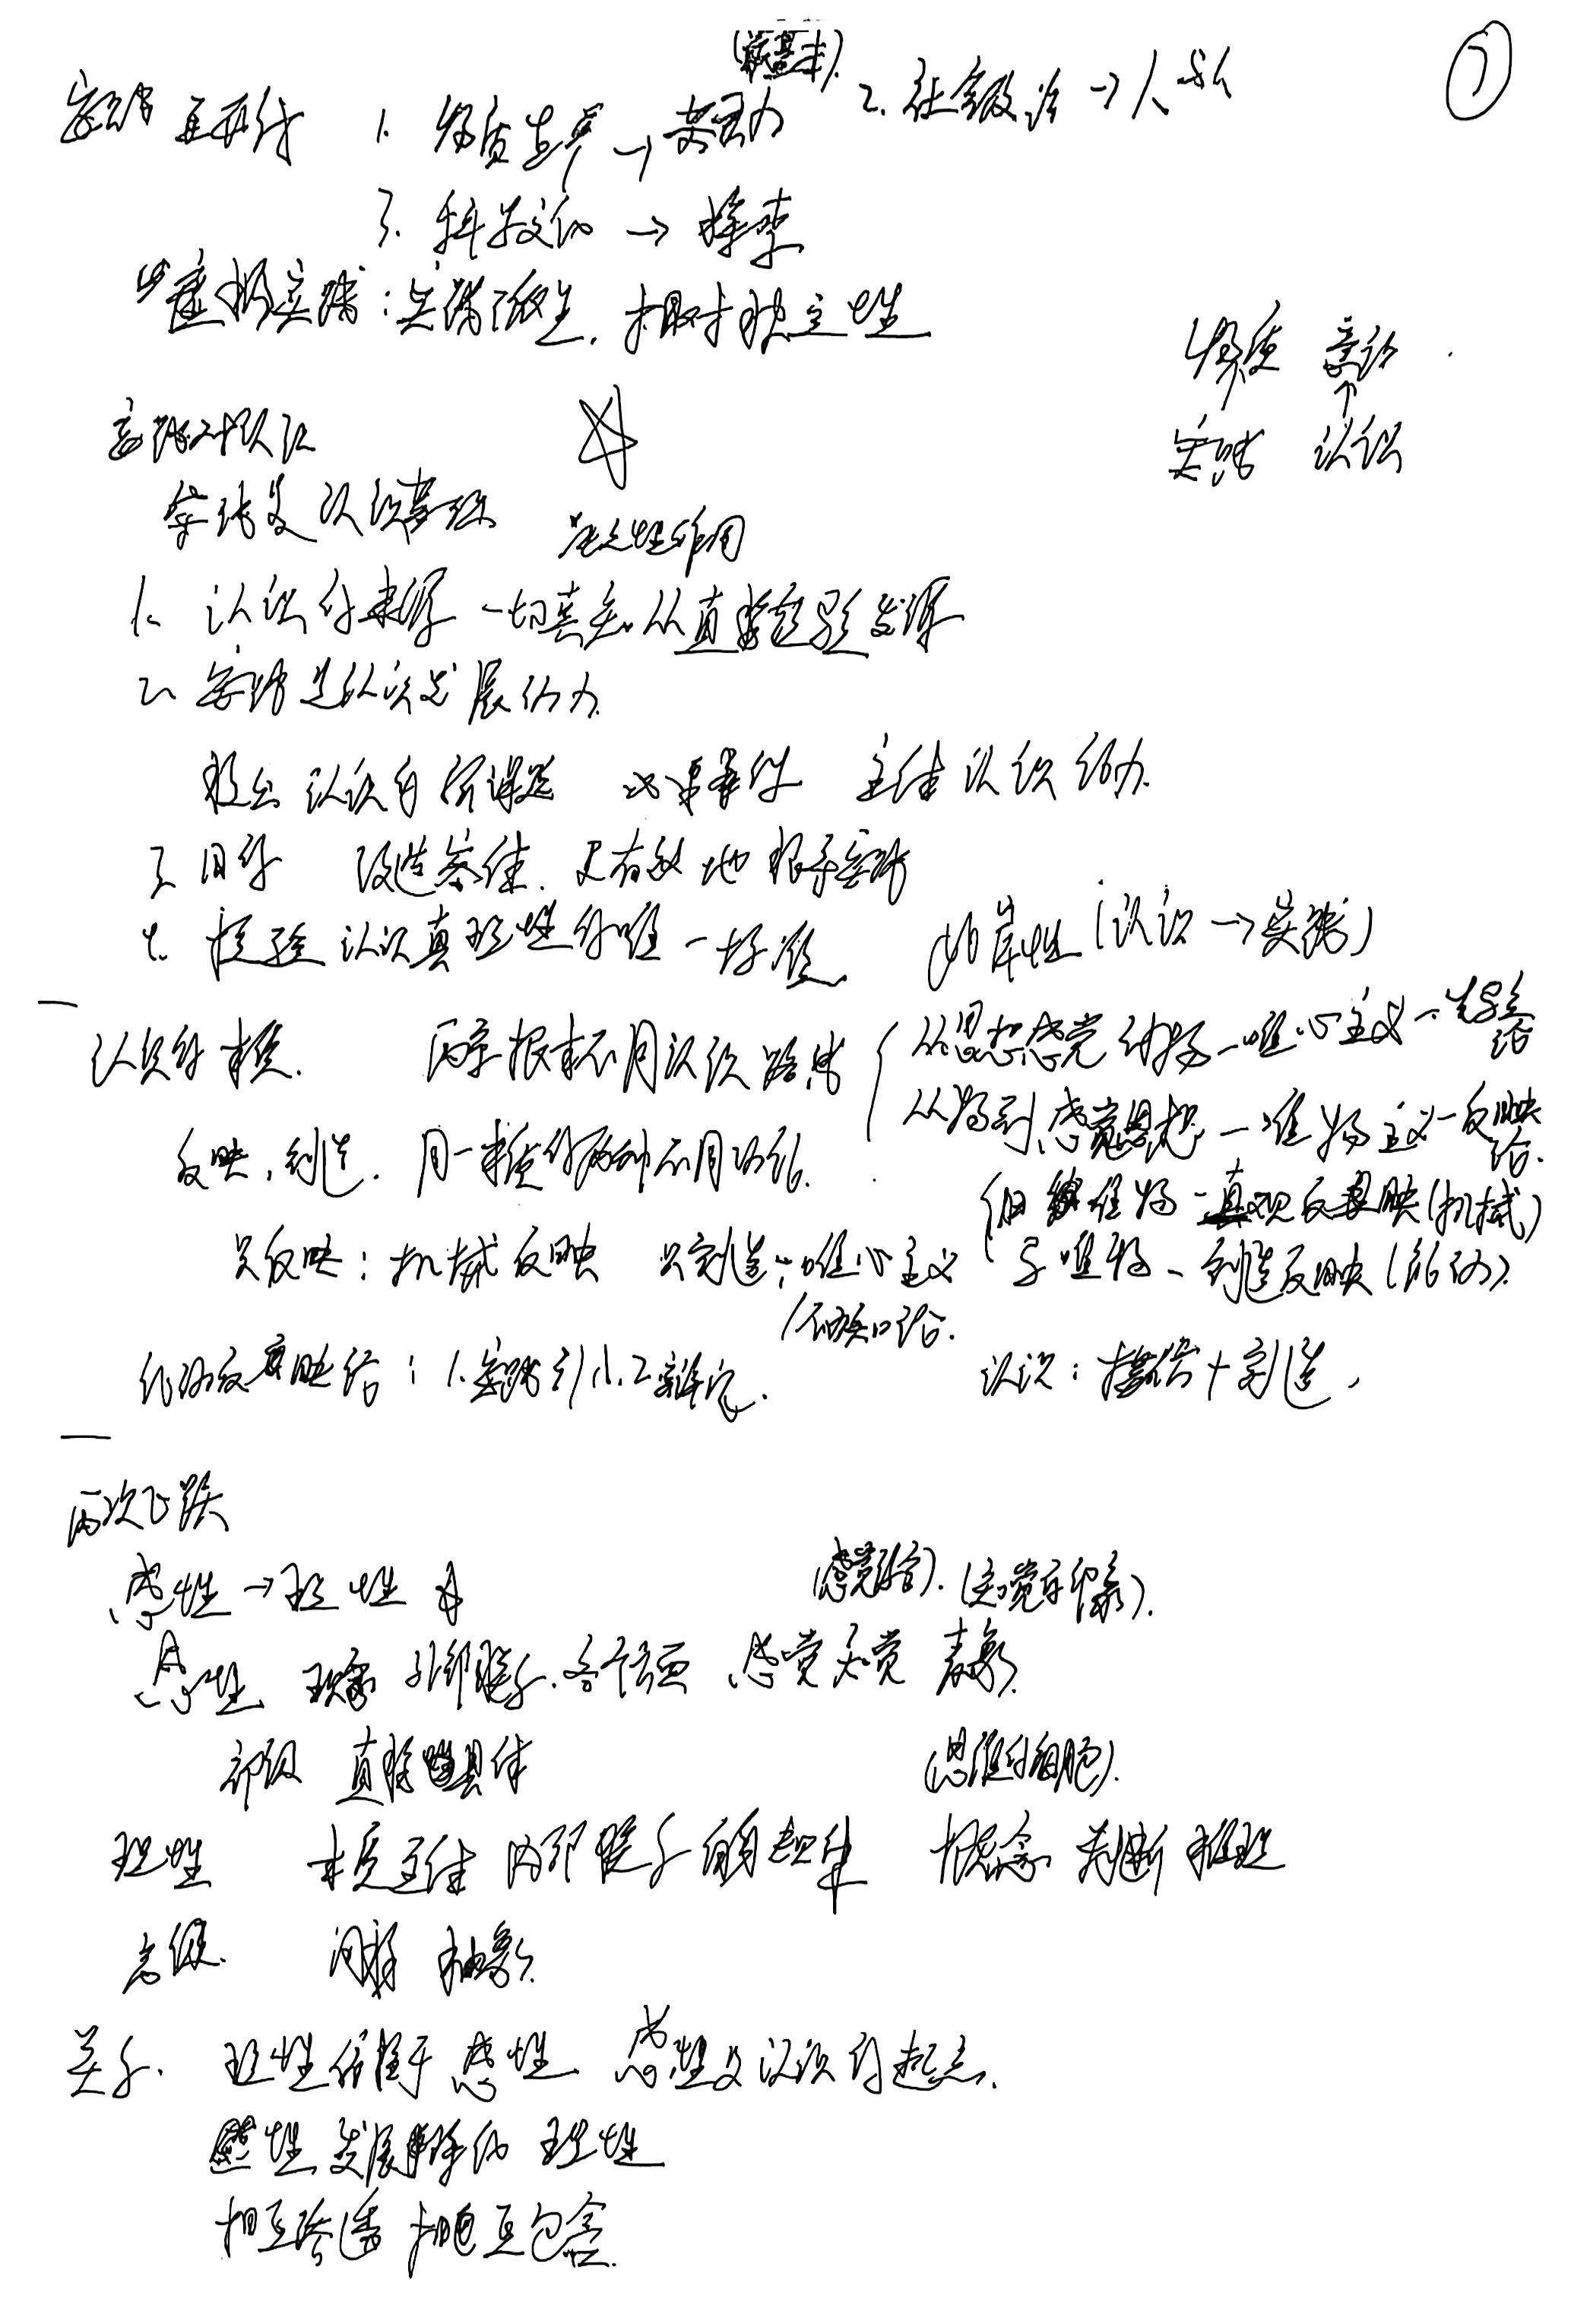 (最基本).
⑦
实践 基本形式 1. 物质生产→ 2. 社会政治→人与人
3. 科学文化→探索
虚拟实践:实践派生,相对独立性
物质 意识
↑
实践 认识
实践对认识
实践是认识基础 决定性作用
1. 认识的来源 一切真知从直接经验发源
2. 实践是认识发展动力
提出认识的新课题 必要条件 主体认识能力.
3. 目的 改造客体.更有效地指导实践
4. 检验认识真理性的唯一标准. 此岸性(认识→实践)
认识的本质. 两条根本不同认识路线 从思想感觉到物—唯心主义—先验论
从物到感觉思想—唯物主义—反映论.
反映,创造.同一本质的两种不同功能.
旧唯物—直观反映(机械)
只反映:机械反映 只创造:唯心主义 辛唯物—创造反映(能动).
/不可知论.
能动反映论:1.实践引入.2.辩证. 认识:摹仿+创造,
两次飞跃
感性→理性 (感觉器官).(知觉的印象).
感性 现象 外部联系.各个方面 感觉 知觉 表象.
初级 直接 具体 (思维的细胞).
理性 本质 全体 内部联系 自身规律 概念 判断 推理
高级. 间接 抽象.
关系. 理性依赖于感性 感性是认识的起点.
感性 发展深化 理性
相互渗透 相互包含.